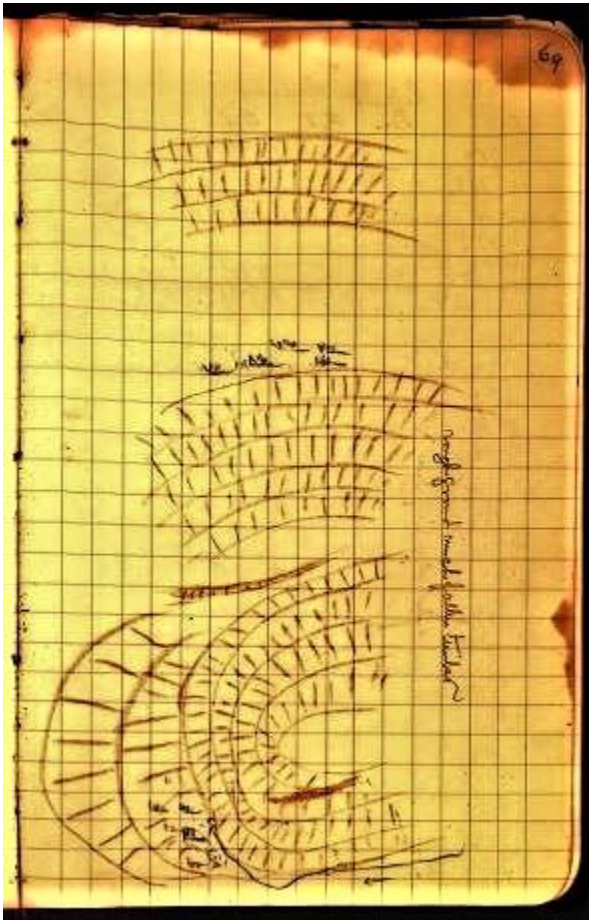 69
rough ground much fallen timber